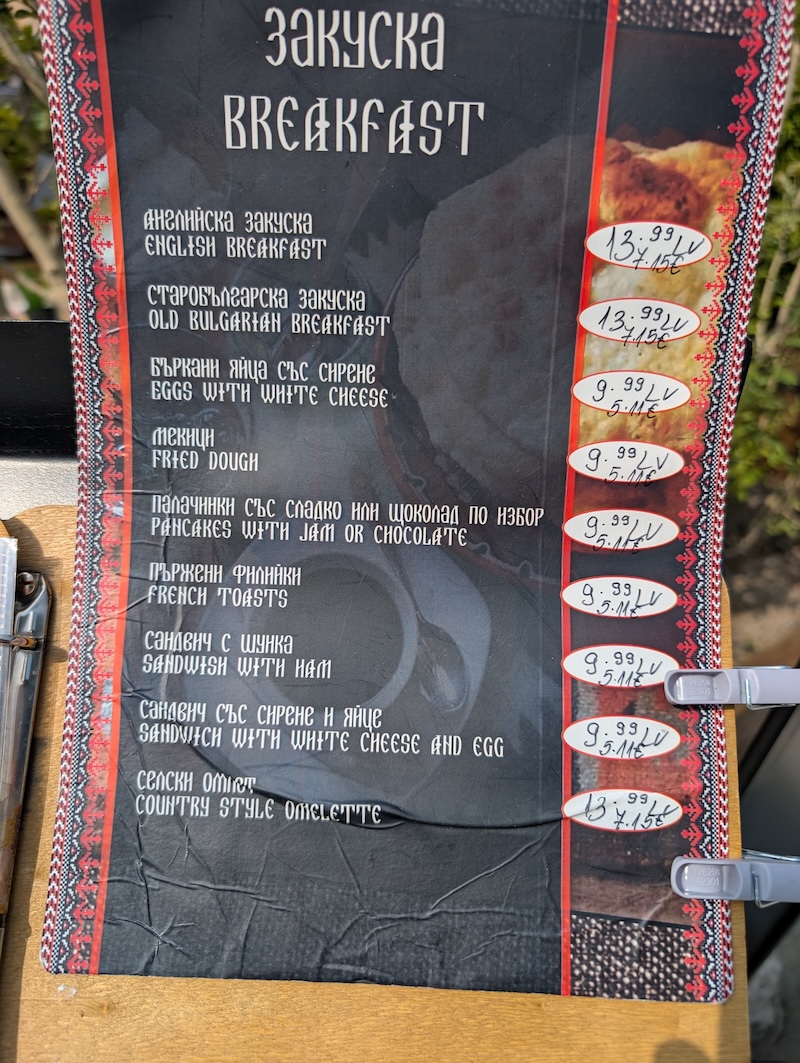 ЗАКУСКА
BREAKFAST
АНГЛИЙСКА ЗАКУСКА
ENGLISH BREAKFAST
13.99 LV
7.15€
СТАРОБЪЛГАРСКА ЗАКУСКА
OLD BULGARIAN BREAKFAST
13.99 LV
7.15€
БЪРКАНИ ЯЙЦА СЪС СИРЕНЕ
EGGS WITH WHITE CHEESE
9.99 LV
5.11€
МЕКИЦИ
FRIED DOUGH
9.99 LV
5.11€
ПАЛАЧИНКИ СЪС СЛАДКО ИЛИ ЩОКОЛАД ПО ИЗБОР
PANCAKES WITH JAM OR CHOCOLATE
9.99 LV
5.11€
ПЪРЖЕНИ ФИЛИЙКИ
FRENCH TOASTS
9.99 LV
5.11€
САНДВИЧ С ШУНКА
SANDWISH WITH HAM
9.99 LV
5.11€
САНДВИЧ СЪС СИРЕНЕ И ЯЙЦЕ
SANDWICH WITH WHITE CHEESE AND EGG
9.99 LV
5.11€
СЕЛСКИ ОМЛЕТ
COUNTRY STYLE OMELETTE
13.99 LV
7.15€